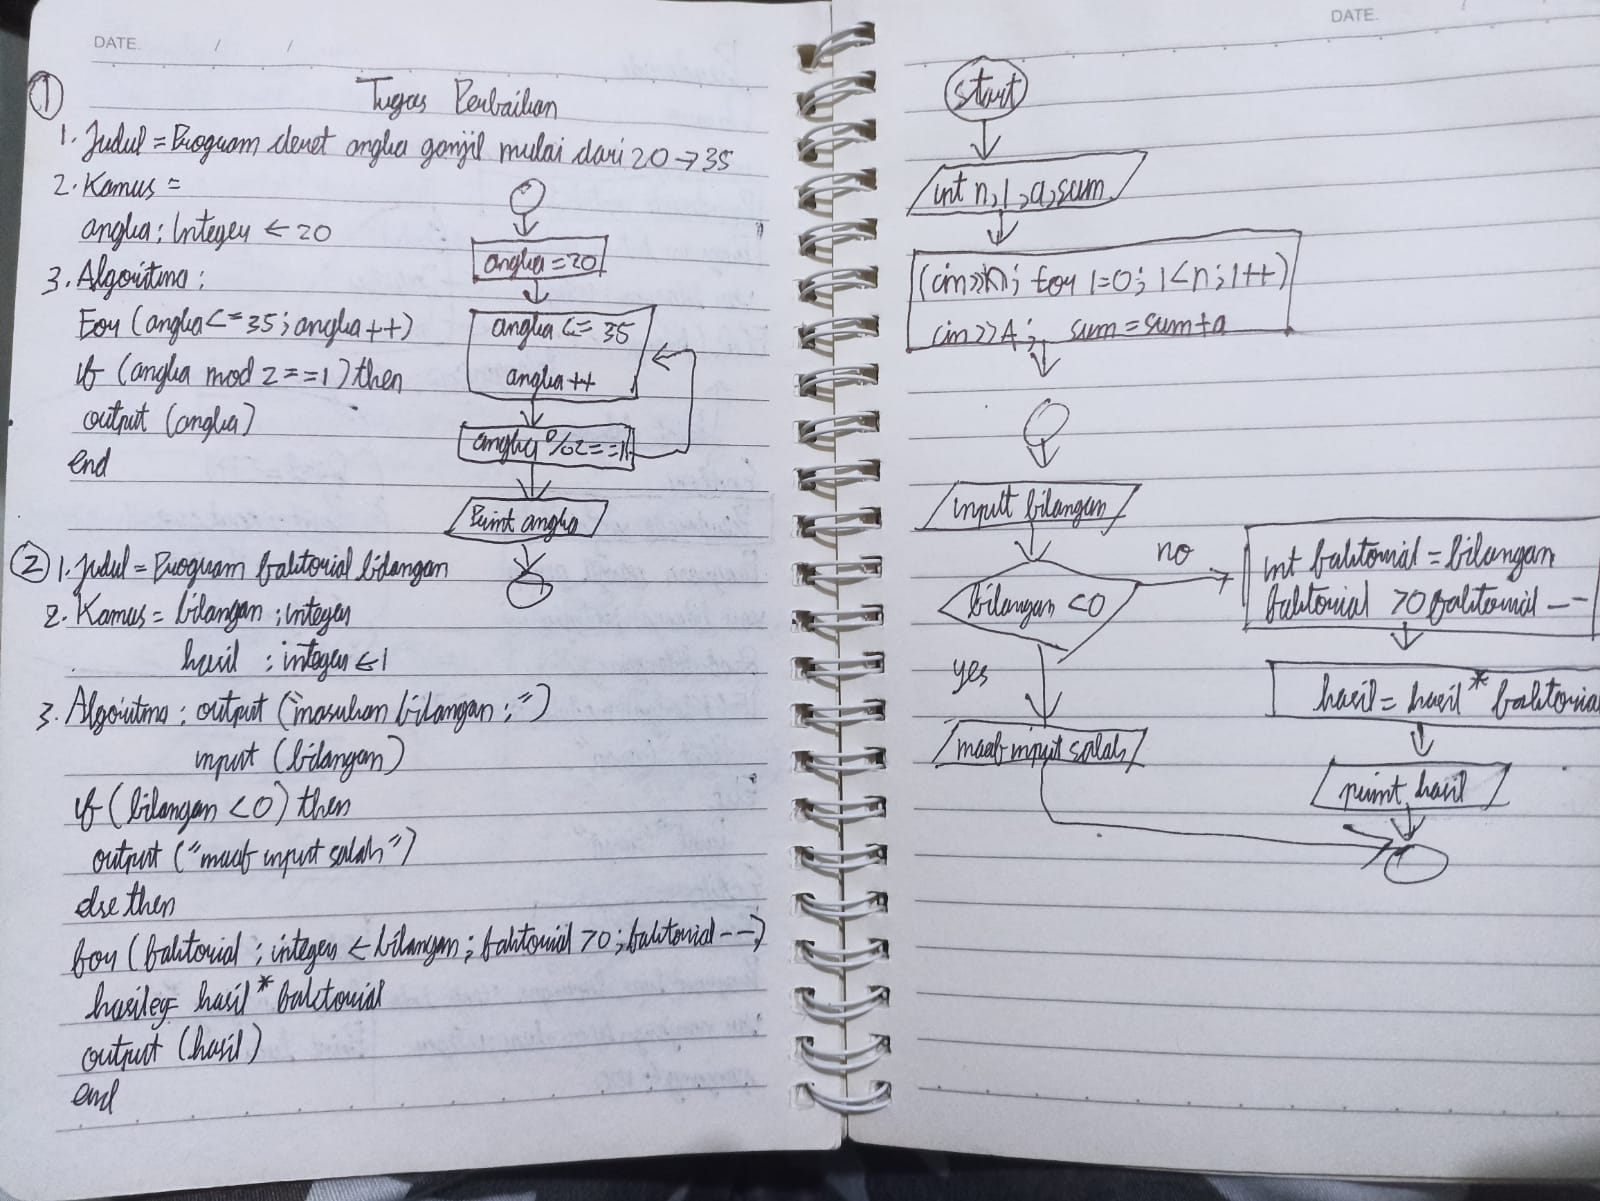 DATE. / /
①
Tugas Perbaikan
1. Judul = Program deret angka ganjil mulai dari 20 → 35
2. Kamus =
angka : Integer ← 20
3. Algoritma :
For (angka <= 35 ; angka ++)
if (angka mod 2 == 1) then
output (angka)
end
angka = 20
angka <= 35
angka ++
angka % 2 == 1
Print angka
② 1. Judul = Program faktorial bilangan
2. Kamus = bilangan ; integer
hasil : integer ← 1
3. Algoritma : output ("masukan bilangan : ")
input (bilangan)
if (bilangan < 0) then
output ("maaf input salah")
else then
for (faktorial : integer ← bilangan ; faktorial > 0 ; faktorial --)
hasil ← hasil * faktorial
output (hasil)
end
DATE. /
start
int n, I, a, sum
(cin >> n; for I=0; I<n; I++)
cin >> A; sum = sum + a
input bilangan
bilangan < 0
no
yes
int faktorial = bilangan
faktorial > 0 faktorial --
hasil = hasil * faktorial
maaf input salah
print hasil